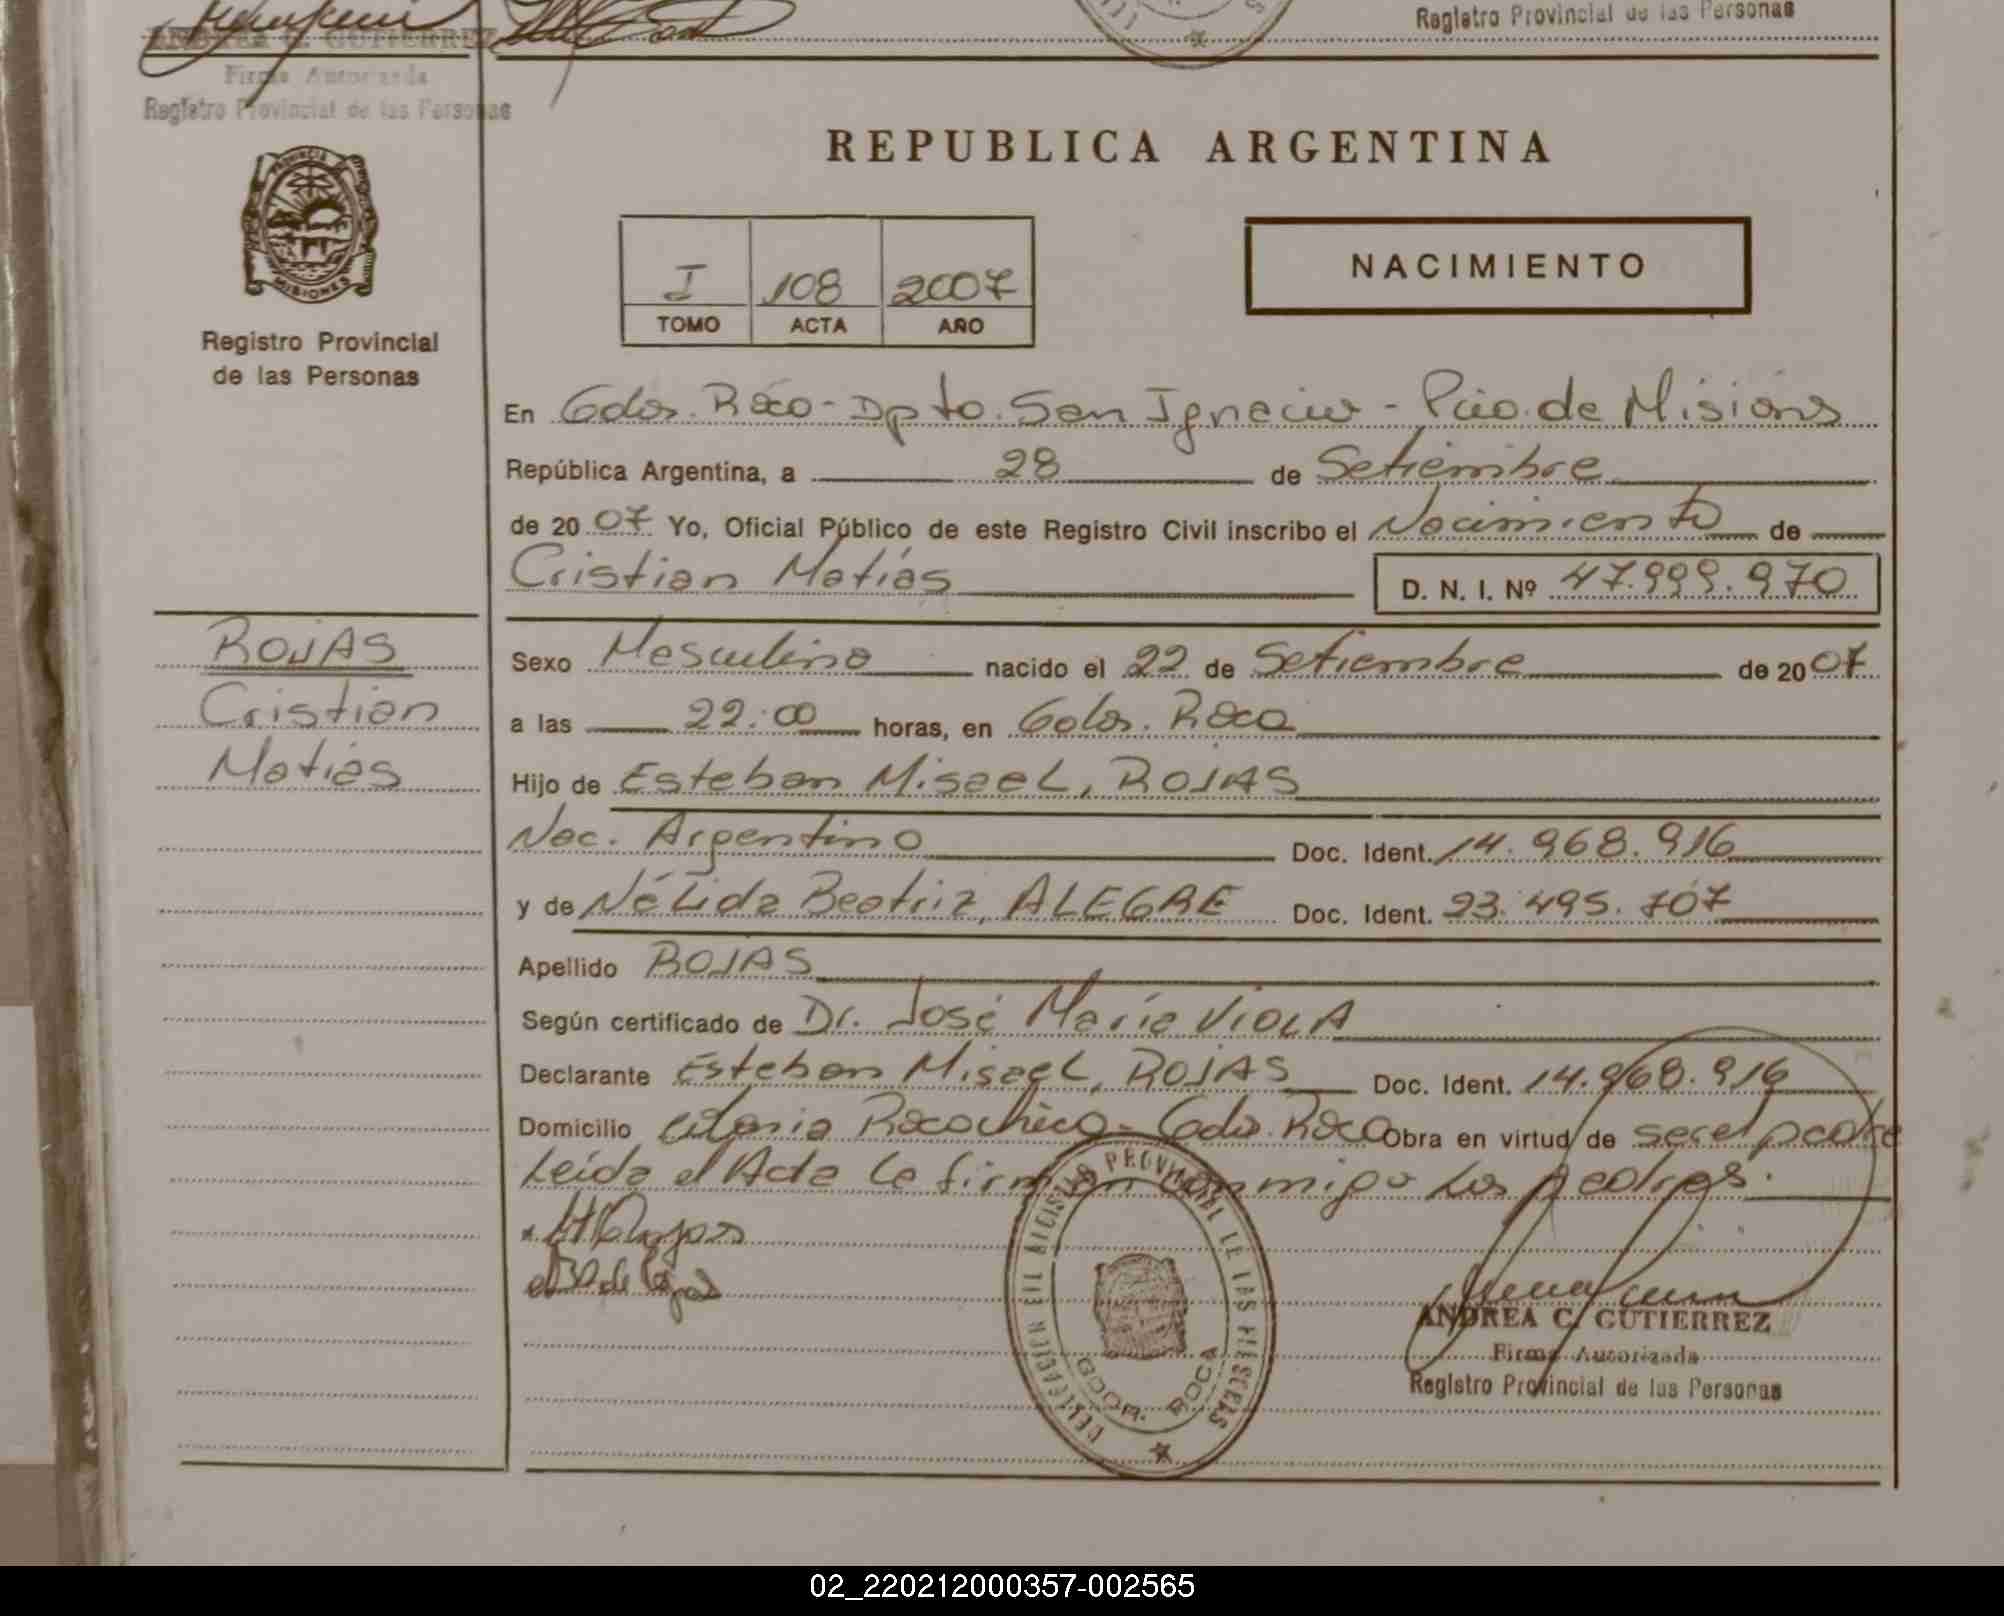 ANDREA C. GUTIERREZ
Firma Autorizada
Registro Provincial de las Personas
Registro Provincial de las Personas
PROVINCIA DE
MISIONES
Registro Provincial
de las Personas
REPUBLICA ARGENTINA
I 108 2007
TOMO ACTA AÑO
NACIMIENTO
En Gdor. Roca - Dpto. San Ignacio - Pcia. de Misiones
República Argentina, a 28 de Setiembre
de 2007 Yo, Oficial Público de este Registro Civil inscribo el Nacimiento de
Cristian Matías D. N. I. Nº 47.999.970
ROJAS
Cristian
Matías
Sexo Masculino nacido el 22 de Setiembre de 2007
a las 22:00 horas, en Gdor. Roca
Hijo de Esteban Misael, ROJAS
Nac. Argentino Doc. Ident. 14.968.916
y de Nélida Beatriz, ALEGRE Doc. Ident. 23.495.707
Apellido ROJAS
Según certificado de Dr. José María VIOLA
Declarante Esteban Misael, ROJAS Doc. Ident. 14.968.916
Domicilio Colonia Roca Chica - Gdor. Roca Obra en virtud de ser el padre
Leída el Acta la firman conmigo los padres.
DELEGACION DEL REGISTRO PROVINCIAL DE LAS PERSONAS
GDOR. ROCA
ANDREA C. GUTIERREZ
Firma Autorizada
Registro Provincial de las Personas
02_220212000357-002565